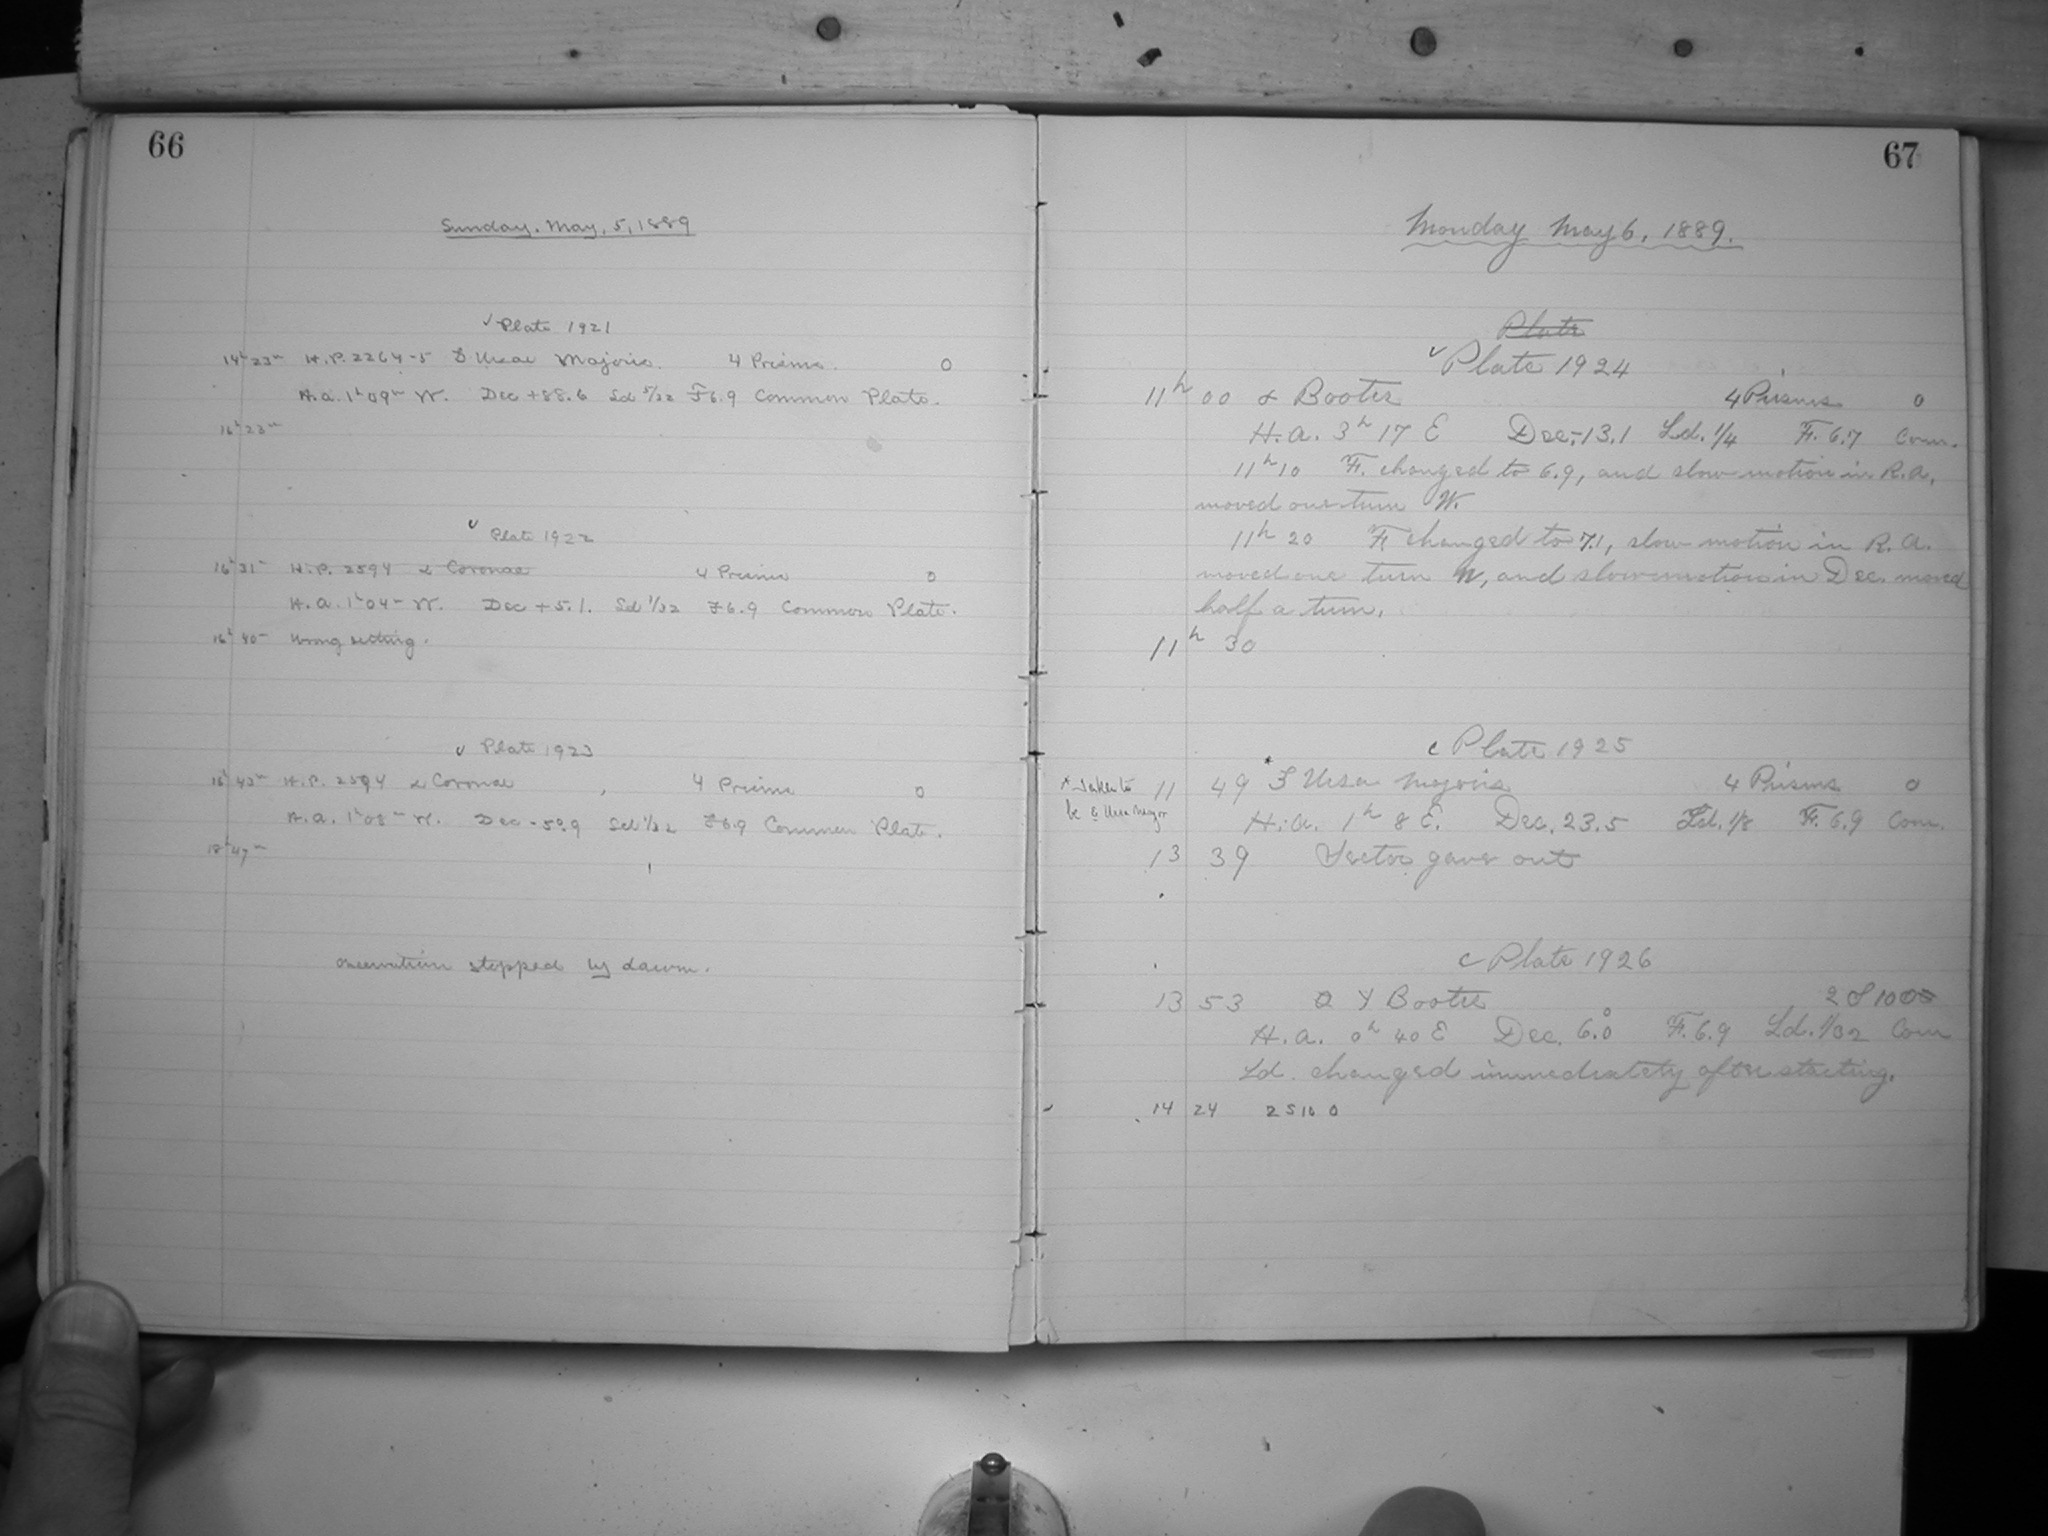 66
Sunday. May, 5, 1889
✓ Plate 1921
14h 23m H.P. 2264-5 Ursae Majoris. 4 Prisms. 0
H.a. 1h 09m W. Dec +88.6 F 6.9 Common Plate.
16h 23m
✓ Plate 1922
16h 31m H.P. 2594 α Coronae 4 Prisms 0
H.a. 1h 04m W. Dec +5.1. Sd 1/32 F 6.9 Common Plate.
16h 40m Wrong setting.
✓ Plate 1923
16h 43m H.P. 2594 α Coronae 4 Prisms 0
H.a. 1h 08m W. Dec -5°.9 Sd 1/32 F 6.9 Common Plate.
18h 47m
Observation stopped by dawn.
67
Monday May 6, 1889.
Plate
✓ Plate 1924
11h 00 α Bootis 4 Prisms 0
H.a. 3h 17 E Dec.-13.1 Sd. 1/4 F. 6.7 Com.
11h 10 F. changed to 6.9, and slow motion in R.A.
moved one turn W.
11h 20 F. changed to 7.1, slow motion in R.A.
moved one turn W, and slow motion in Dec. moved
half a turn.
11h 30
c Plate 1925
11 49 *ζ Ursa Majoris 4 Prisms 0
* Taken to
be ε Ursa Major
H.a. 1h 8 E. Dec. 23.5 Sd. 1/8 F. 6.9 Com.
13 39 Sector gave out
c Plate 1926
13 53 γ Bootis 2 S 10
H.a. 0h 40 E Dec. 6.0 F. 6.9 Sd. 1/32 Com
Sd. changed immediately after starting.
14 24 2 S 10 0